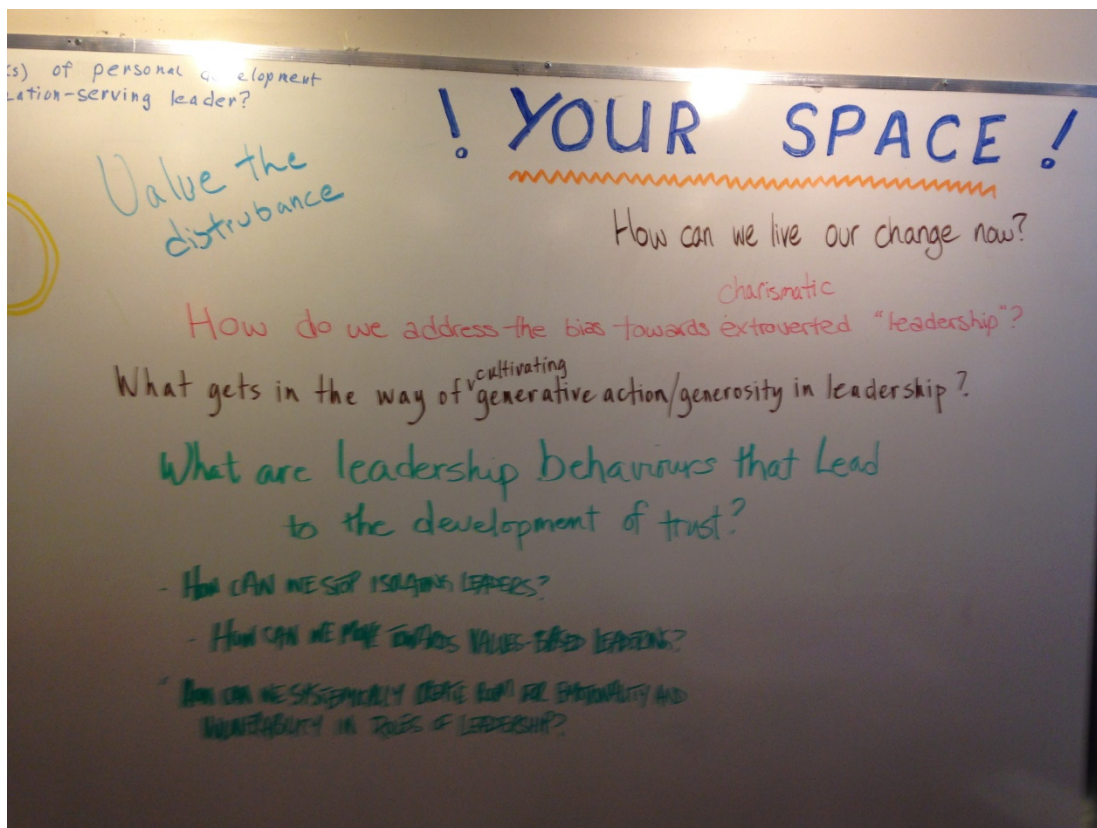 (s) of personal development
ation-serving leader?
! YOUR SPACE !
Value the
distrubance
How can we live our change now?
charismatic
How do we address the bias towards extroverted "leadership"?
cultivating
What gets in the way of generative action/generosity in leadership?
What are leadership behaviours that Lead
to the development of trust?
- HOW CAN WE STOP ISOLATING LEADERS?
- HOW CAN WE MOVE TOWARDS VALUES-BASED LEADERS?
- HOW CAN WE SYSTEMICALLY CREATE ROOM FOR EMOTIONALITY AND
VULNERABILITY IN ROLES OF LEADERSHIP?